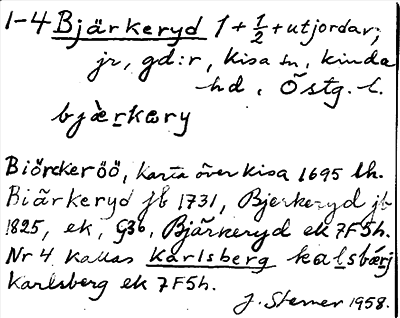 1-4 Bjärkeryd 1 + 1/2 + utjordar;
jr, gd:r, Kisa sn, Kinda
hd, Östg. l.
bjæ̀rkəry
Biörckeröö, karta över Kisa 1695 lh.
Biärkeryd jb 1731, Bjerkeryd jb
1825, ek, G36, Bjärkeryd ek 7F5h.
Nr 4 kallas Karlsberg kalsbærj
Karlsberg ek 7F5h.
J. Sterner 1958.